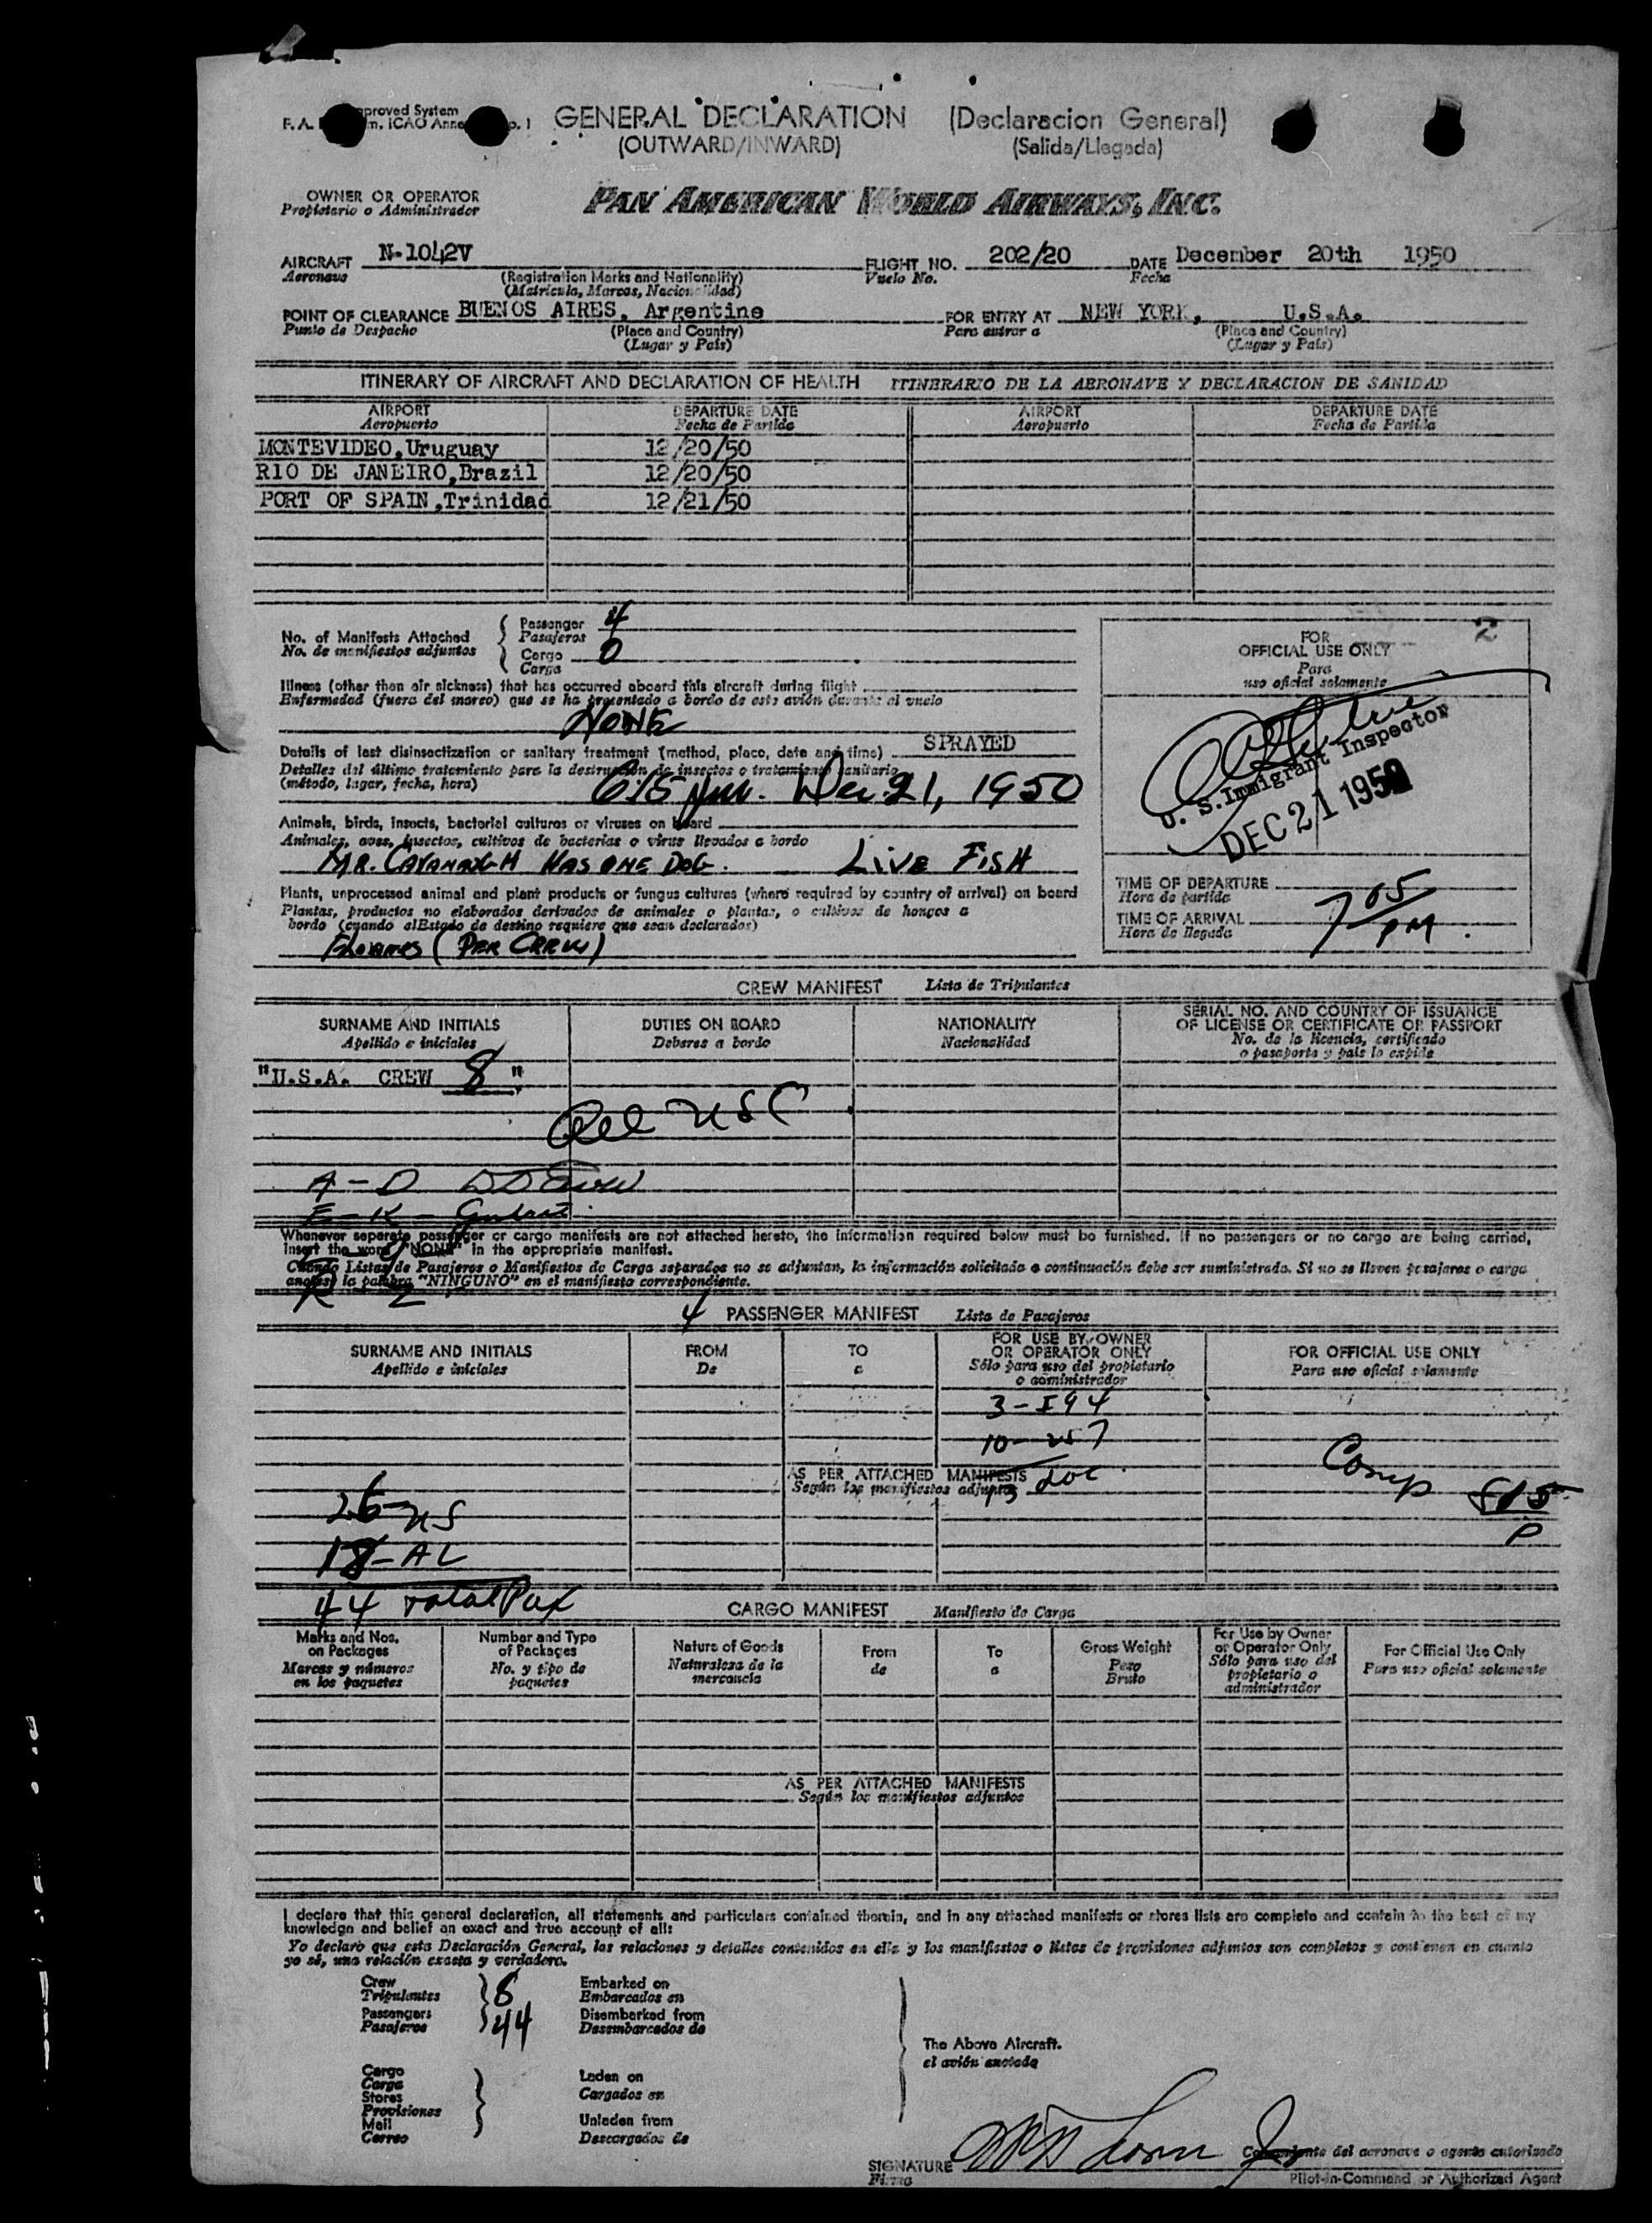 GENERAL DECLARATION (Declaracion General)
(OUTWARD/INWARD) (Salida/Llegada)
OWNER OR OPERATOR
Propietario o Administrador
PAN AMERICAN WORLD AIRWAYS, INC.
AIRCRAFT N-1042V FLIGHT NO. 202/20 DATE December 20th 1950
Aeronave (Registration Marks and Nationality) Vuelo No. Fecha
(Matricula, Marcas, Nacionalidad)
POINT OF CLEARANCE BUENOS AIRES. Argentine FOR ENTRY AT NEW YORK, U.S.A.
Punto de Despacho (Place and Country) Para entrar a (Place and Country)
(Lugar y País) (Lugar y País)
ITINERARY OF AIRCRAFT AND DECLARATION OF HEALTH ITINERARIO DE LA AERONAVE Y DECLARACION DE SANIDAD
AIRPORT DEPARTURE DATE AIRPORT DEPARTURE DATE
Aeropuerto Fecha de Partida Aeropuerto Fecha de Partida
MONTEVIDEO,Uruguay 12/20/50
RIO DE JANEIRO,Brazil 12/20/50
PORT OF SPAIN,Trinidad 12/21/50
No. of Manifests Attached
No. de manifiestos adjuntos
Passenger 4
Pasajeros
Cargo 0
Carga
Illness (other than air sickness) that has occurred aboard this aircraft during flight
Enfermedad (fuera del mareo) que se ha presentado a bordo de este avión durante el vuelo
NONE
Details of last disinsectization or sanitary treatment (method, place, date and time) SPRAYED
Detalles del último tratamiento para la destrucción de insectos o tratamiento sanitario
(método, lugar, fecha, hora) 615 pm. Dec 21, 1950
Animals, birds, insects, bacterial cultures or viruses on board
Animales, aves, insectos, cultivos de bacterias o virus llevados a bordo
MR. CAVANAUGH HAS ONE DOG. LIVE FISH
Plants, unprocessed animal and plant products or fungus cultures (where required by country of arrival) on board
Plantas, productos no elaborados derivados de animales o plantas, o cultivos de hongos a
bordo (cuando el Estado de destino requiere que sean declarados)
(PER CREW)
2
FOR
OFFICIAL USE ONLY
Para
uso oficial solamente
U. S. Immigrant Inspector
DEC 21 1950
TIME OF DEPARTURE
Hora de partida
TIME OF ARRIVAL 7 05 PM.
Hora de llegada
CREW MANIFEST Lista de Tripulantes
SURNAME AND INITIALS DUTIES ON BOARD NATIONALITY SERIAL NO. AND COUNTRY OF ISSUANCE
OF LICENSE OR CERTIFICATE OR PASSPORT
Apellido e iniciales Deberes a bordo Nacionalidad No. de la licencia, certificado
o pasaporte y país lo expide
"U.S.A. CREW 8"
All USC
A - D
E - K -
Whenever separate passenger or cargo manifests are not attached hereto, the information required below must be furnished. If no passengers or no cargo are being carried,
insert the word "NONE" in the appropriate manifest.
Cuando Listas de Pasajeros o Manifiestos de Carga separados no se adjuntan, la información solicitada a continuación debe ser suministrada. Si no se lleven pasajeros o carga
anotese la palabra "NINGUNO" en el manifiesto correspondiente.
R Z
4 PASSENGER MANIFEST Lista de Pasajeros
SURNAME AND INITIALS FROM TO FOR USE BY OWNER
OR OPERATOR ONLY FOR OFFICIAL USE ONLY
Apellido e iniciales De a Sólo para uso del propietario
o administrador Para uso oficial solamente
3 - I94
10 - 257
AS PER ATTACHED MANIFESTS
Según los manifiestos adjuntos
13 doc.
Comp 815 P
26 - US
18 - AL
44 total Pax
CARGO MANIFEST Manifiesto de Carga
Marks and Nos.
on Packages
Marcas y números
en los paquetes
Number and Type
of Packages
No. y tipo de
paquetes
Nature of Goods
Naturaleza de la
mercancia
From
de
To
a
Gross Weight
Peso
Bruto
For Use by Owner
or Operator Only
Sólo para uso del
propietario o
administrador
For Official Use Only
Para uso oficial solamente
AS PER ATTACHED MANIFESTS
Según los manifiestos adjuntos
I declare that this general declaration, all statements and particulars contained therein, and in any attached manifests or stores lists are complete and contain to the best of my
knowledge and belief an exact and true account of all:
Yo declaro que esta Declaración General, las relaciones y detalles contenidos en ella y los manifiestos o listas de provisiones adjuntos son completos y contienen en cuanto
yo sé, una relación exacta y verdadera.
Crew 8 Embarked on
Tripulantes Embarcados en
Passengers 44 Disembarked from
Pasajeros Desembarcados de
The Above Aircraft.
el avión anotado
Cargo
Carga
Stores
Provisiones
Mail
Correo
Laden on
Cargados en
Unladen from
Descargados de
SIGNATURE
Firma
Comandante del aeronave o agente autorizado
Pilot-in-Command or Authorized Agent